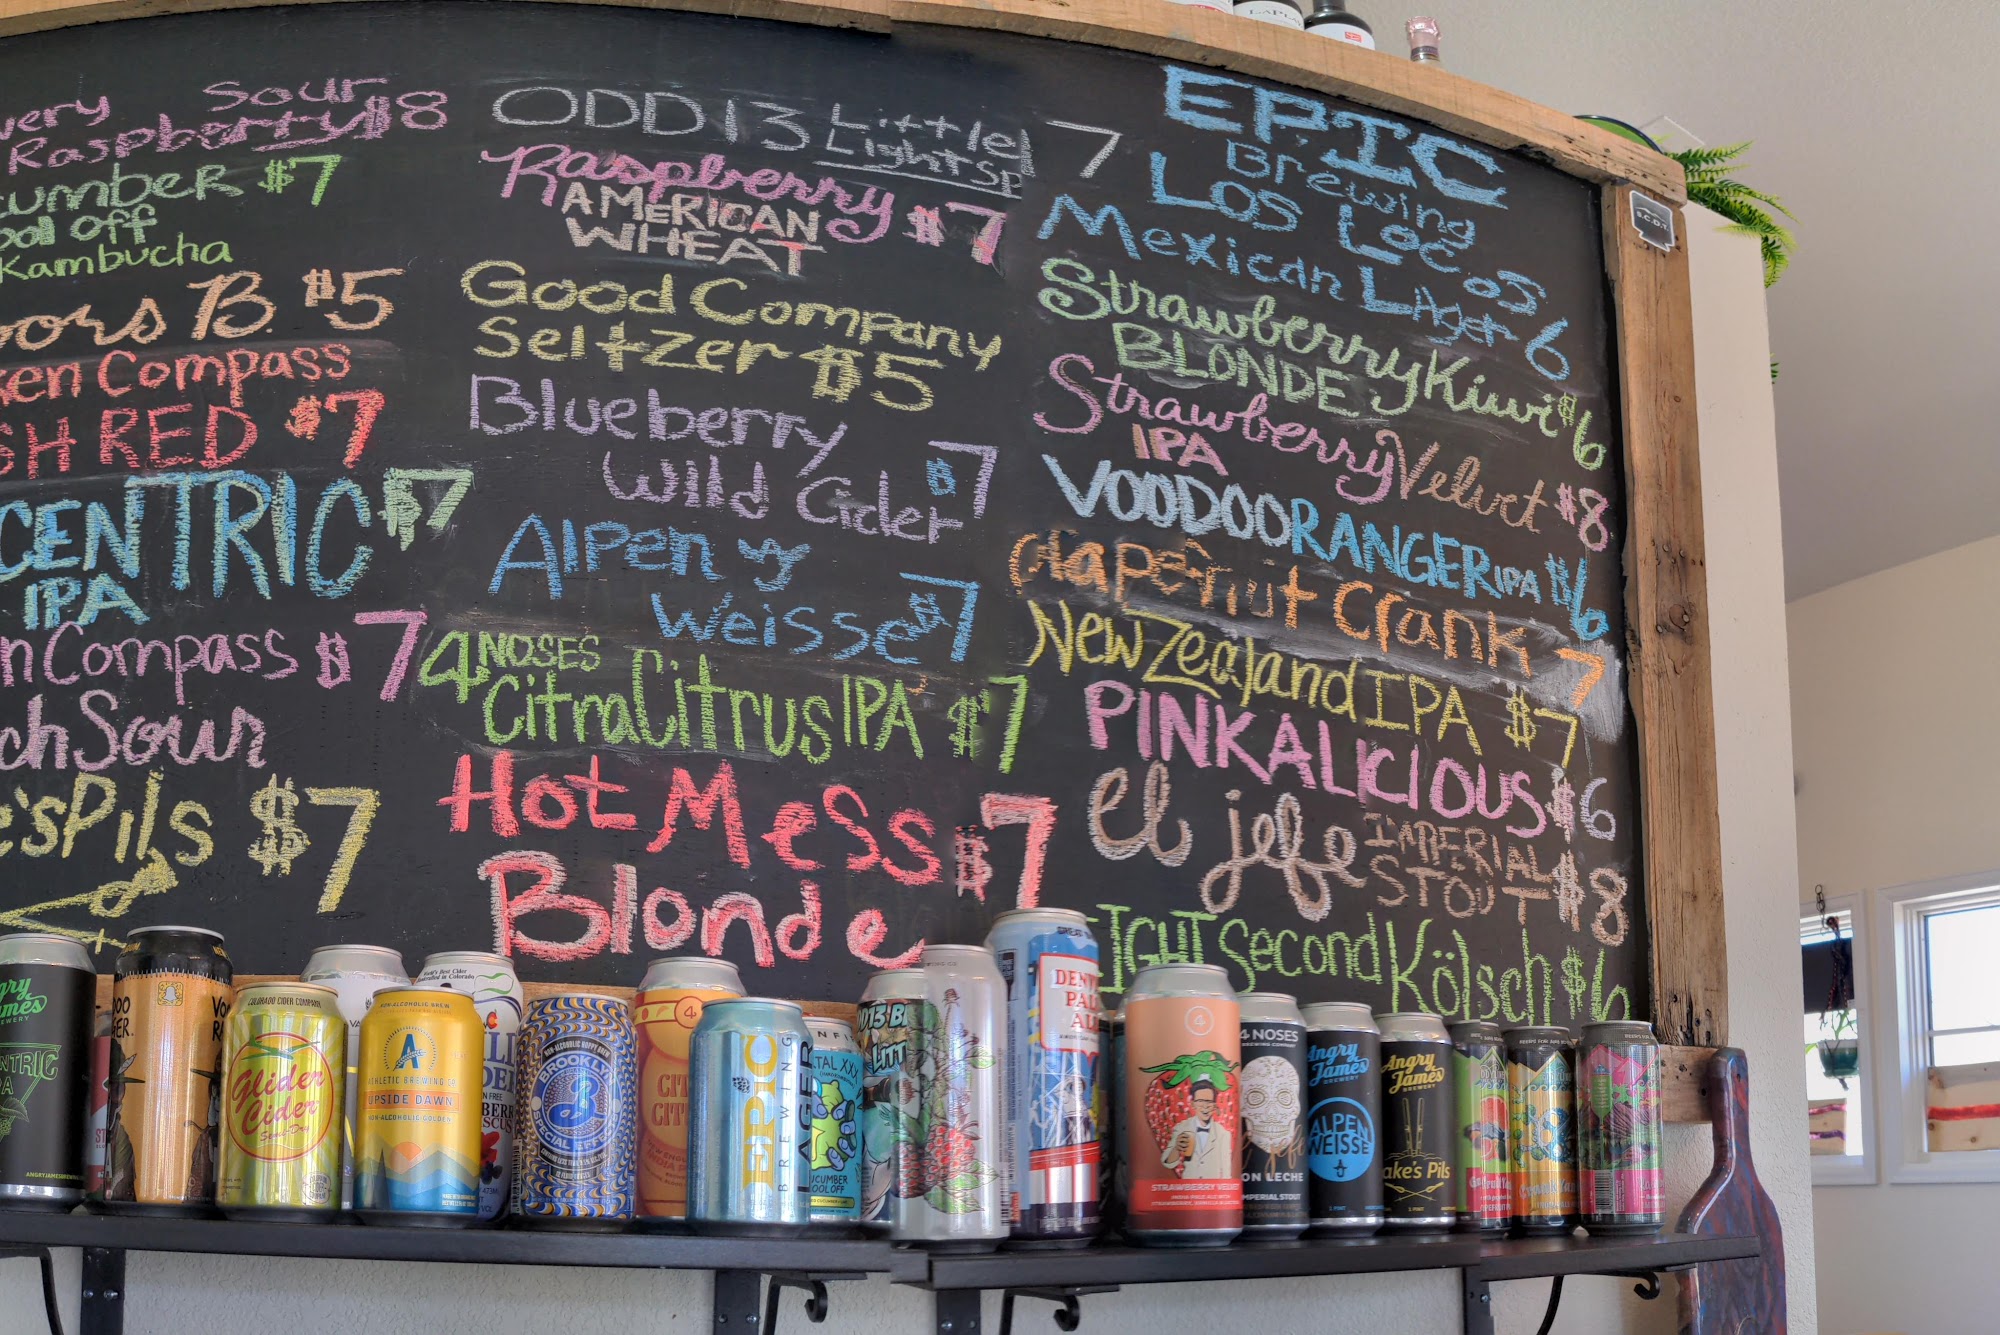 Sour
Raspberry $8
$7
off
Kambucha
B. $5
Compass
RED $7
CENTRIC $7
IPA
Compass $7
Sour
Pils $7
ODD 13 Little 7
Light Sp
Raspberry $7
AMERICAN
WHEAT
Good Company
Seltzer $5
Blueberry
Wild Cider $7
Alpen
Weisse $7
4 NOSES
Citra Citrus IPA $7
Hot Mess $7
Blonde
EPIC
Brewing
LOS LOCOS
Mexican Lager 6
Strawberry Kiwi $6
BLONDE
Strawberry Velvet $8
IPA
VOODOO RANGER IPA $6
Grapefruit Crank 7
New Zealand IPA $7
PINKALICIOUS $6
el jefe IMPERIAL $8
STOUT
EIGHT Second Kölsch $6
Angry
James
BREWERY
IPA
ANGRYJAMESBREWING
COLORADO CIDER COMPANY
Glider
Cider
Semi-Dry
NON-ALCOHOLIC BREW
A
ATHLETIC BREWING CO
UPSIDE DAWN
NON-ALCOHOLIC GOLDEN
NON-ALCOHOLIC HOPPY BREW
BROOKLYN
B
SPECIAL EFFECTS
4
CIT
CIT
EPIC
BREWING
LAGER
TAL XXX
OOL OFF
DENV
PAL
ALE
4
STRAWBERRY VELVET
4 NOSES
BREWING COMPANY
ON LECHE
IMPERIAL STOUT
Angry
James
BREWERY
ALPEN
WEISSE
1 PINT
Angry
James
BREWERY
Jake's Pils
1 PINT
S.C.O.T.